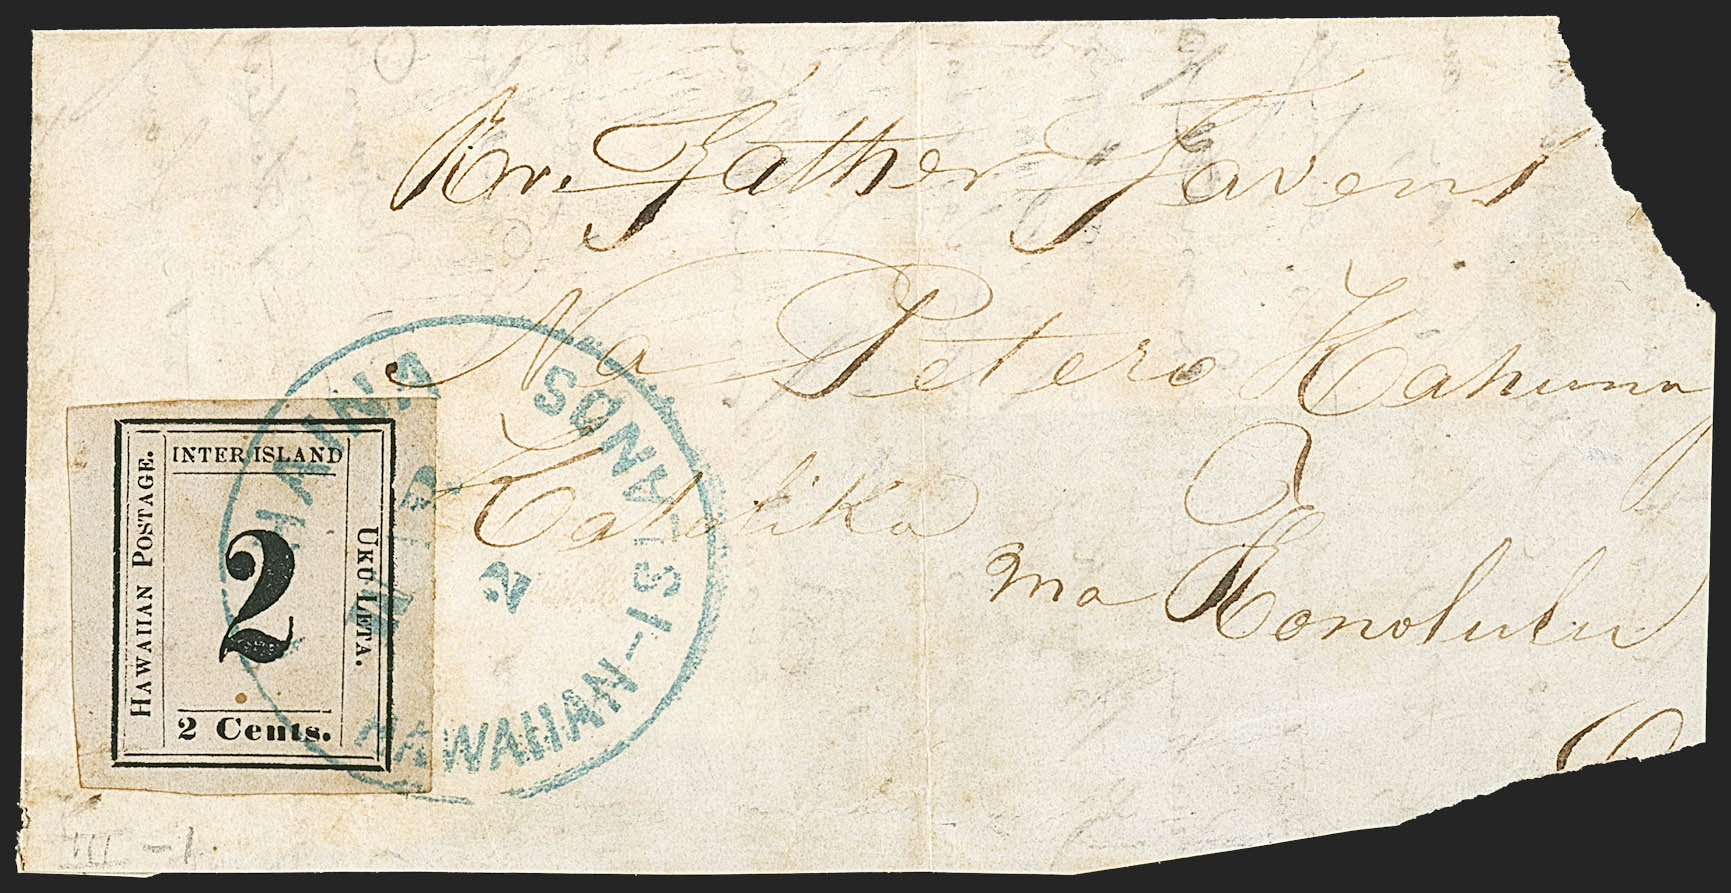 Rv. Father Favens
Na Petero Kahuna
Katolika
ma Honolulu
O
HAWAIIAN POSTAGE.
INTER ISLAND
UKU LETA.
2
2 Cents.
LAHAINA
MAR
2
HAWAIIAN-ISLANDS
III - 1